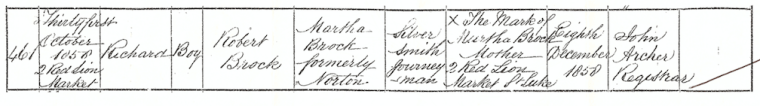 461
Thirty first
October
1858
2 Red Lion
Market
Richard
Boy
Robert
Brock
Martha
Brock
formerly
Norton
Silver
Smith
Journey
man
X The Mark of
Martha Brock
Mother
2 Red Lion
Market St Luke
Eighth
December
1858
John
Archer
Registrar